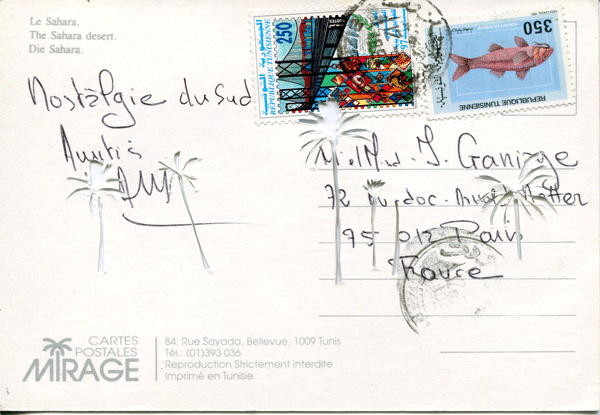 Le Sahara.
The Sahara desert.
Die Sahara.
Nostalgie du Sud
Amitiés
250
REPUBLIQUE TUNISIENNE
350
REPUBLIQUE TUNISIENNE
72 rue doc.
75 012 Paris
France
CARTES
POSTALES
MIRAGE
84, Rue Sayada, Bellevue, 1009 Tunis
Tél.: (01)393 036
Reproduction Strictement interdite
Imprimé en Tunisie